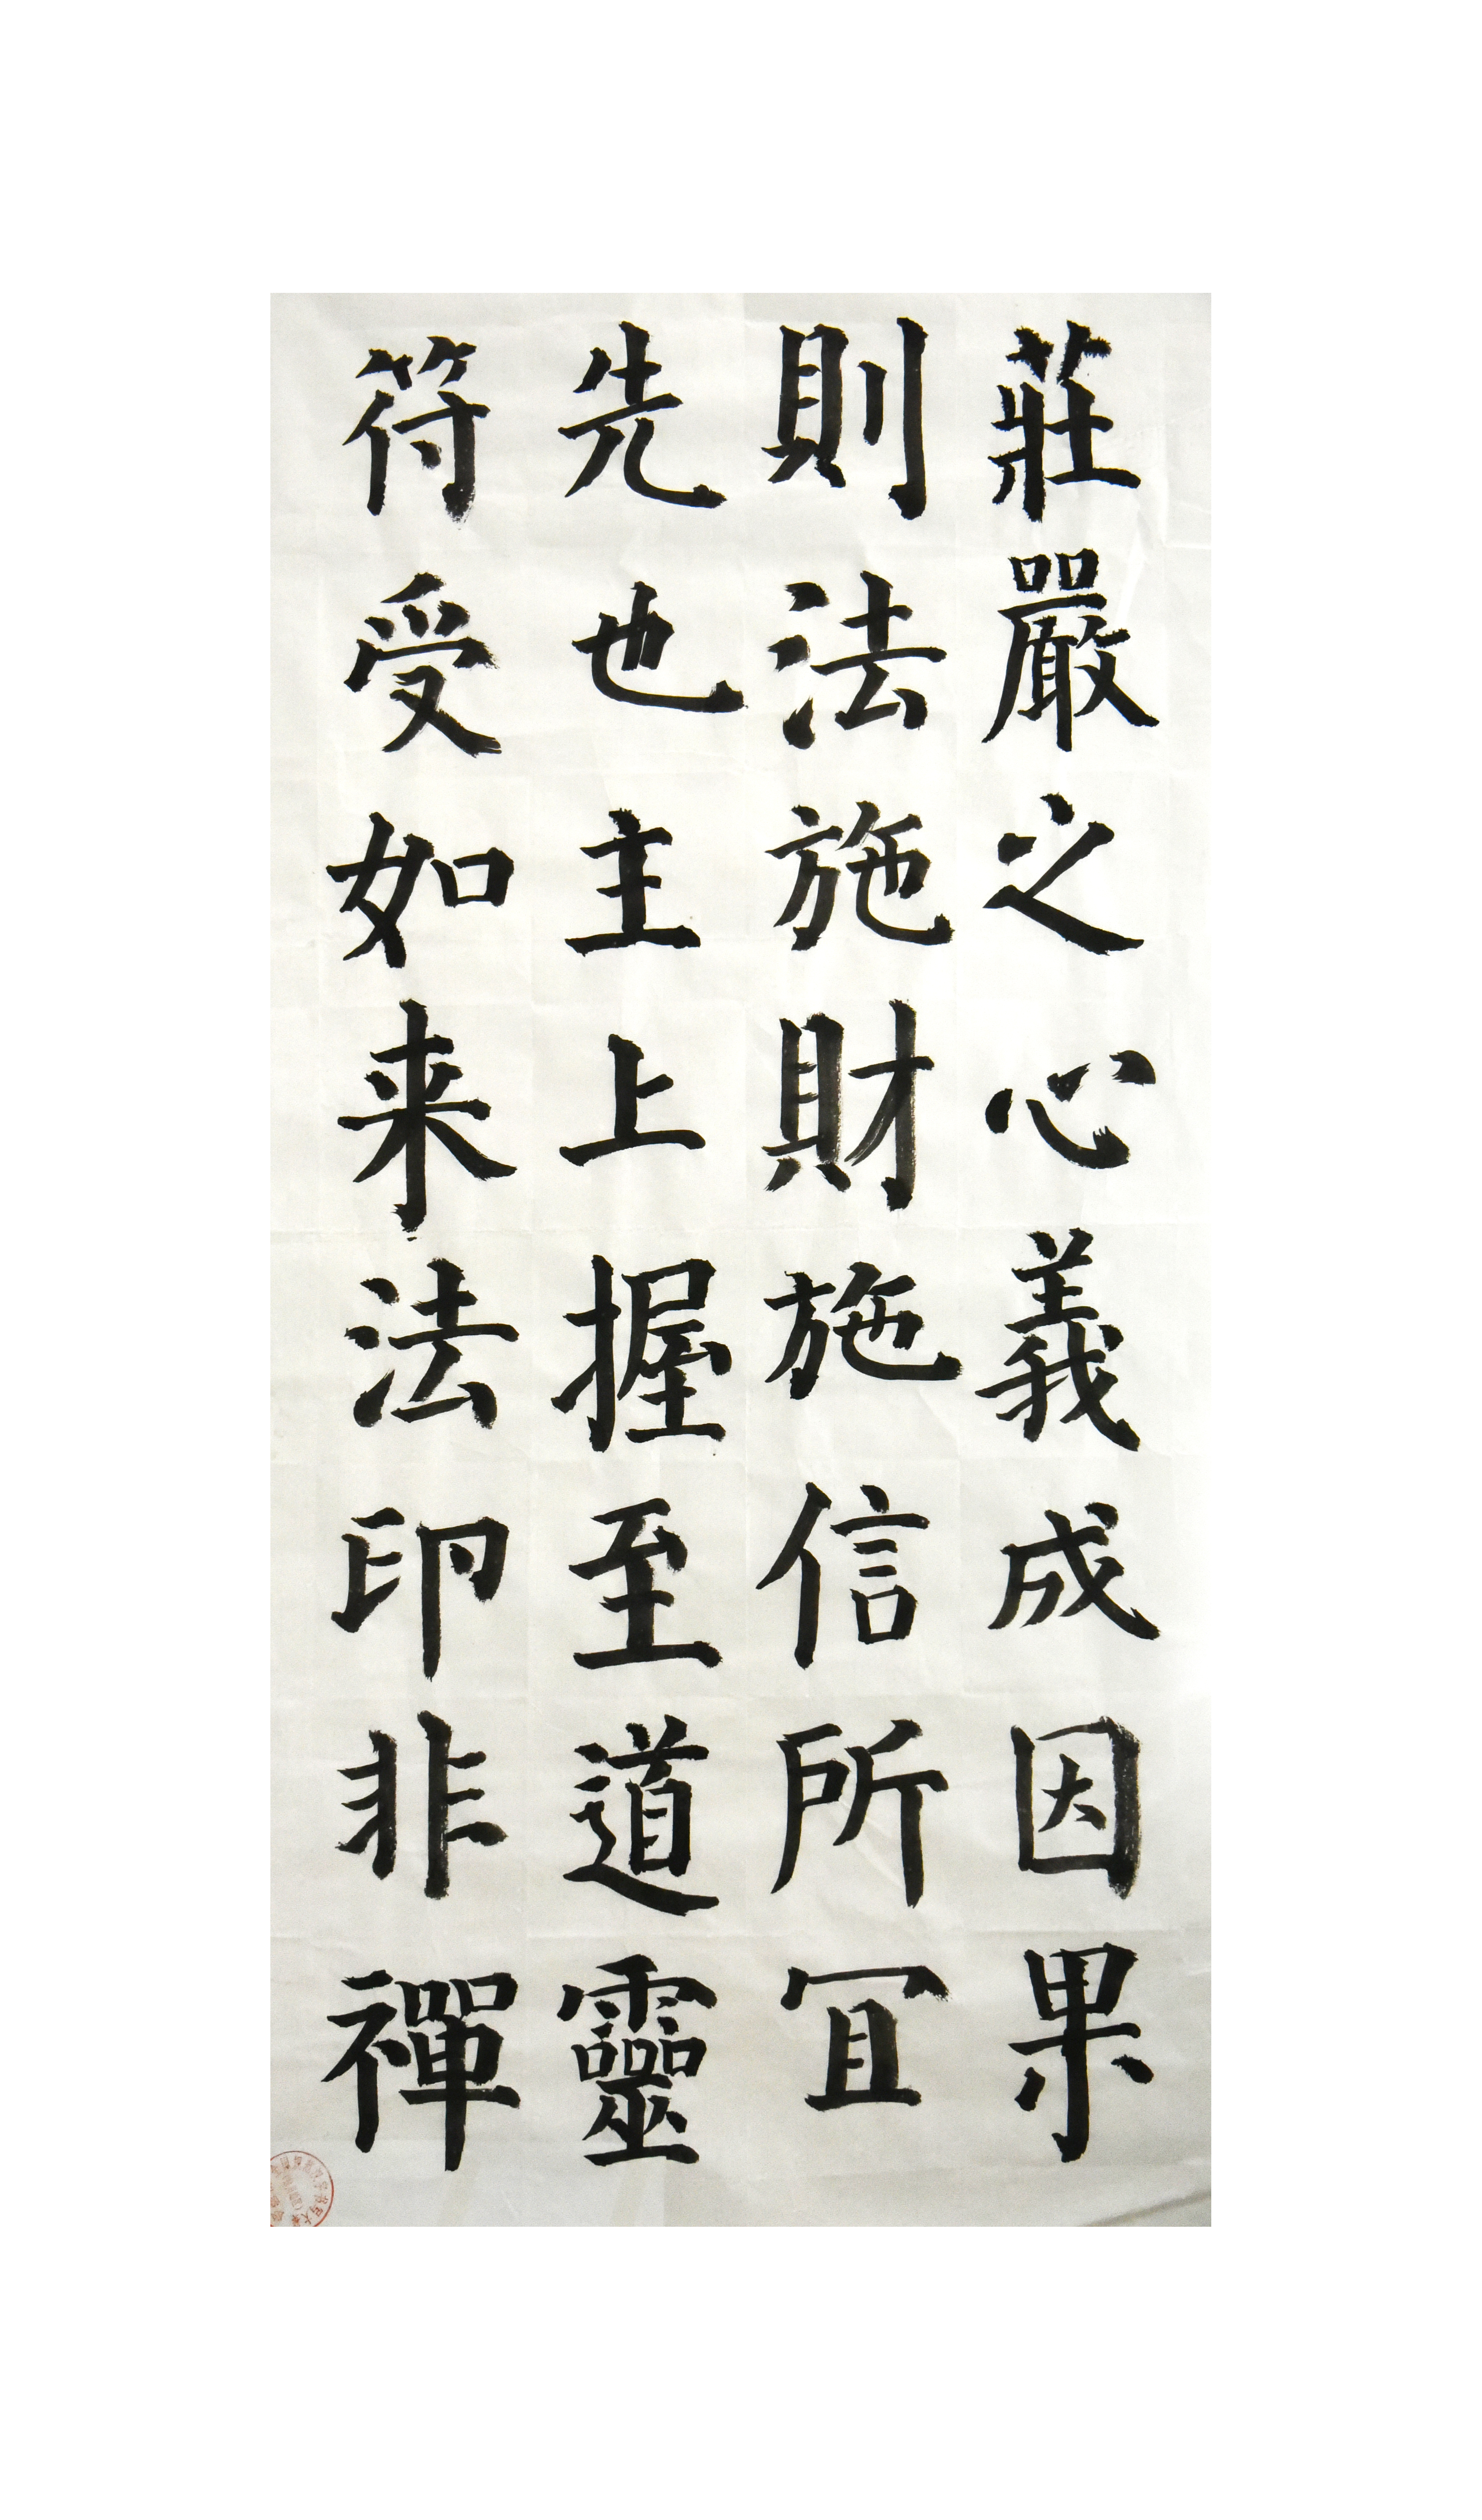 莊嚴之心義成因果
則法施財施信所冝
先也主上握至道靈
符受如来法印非禪